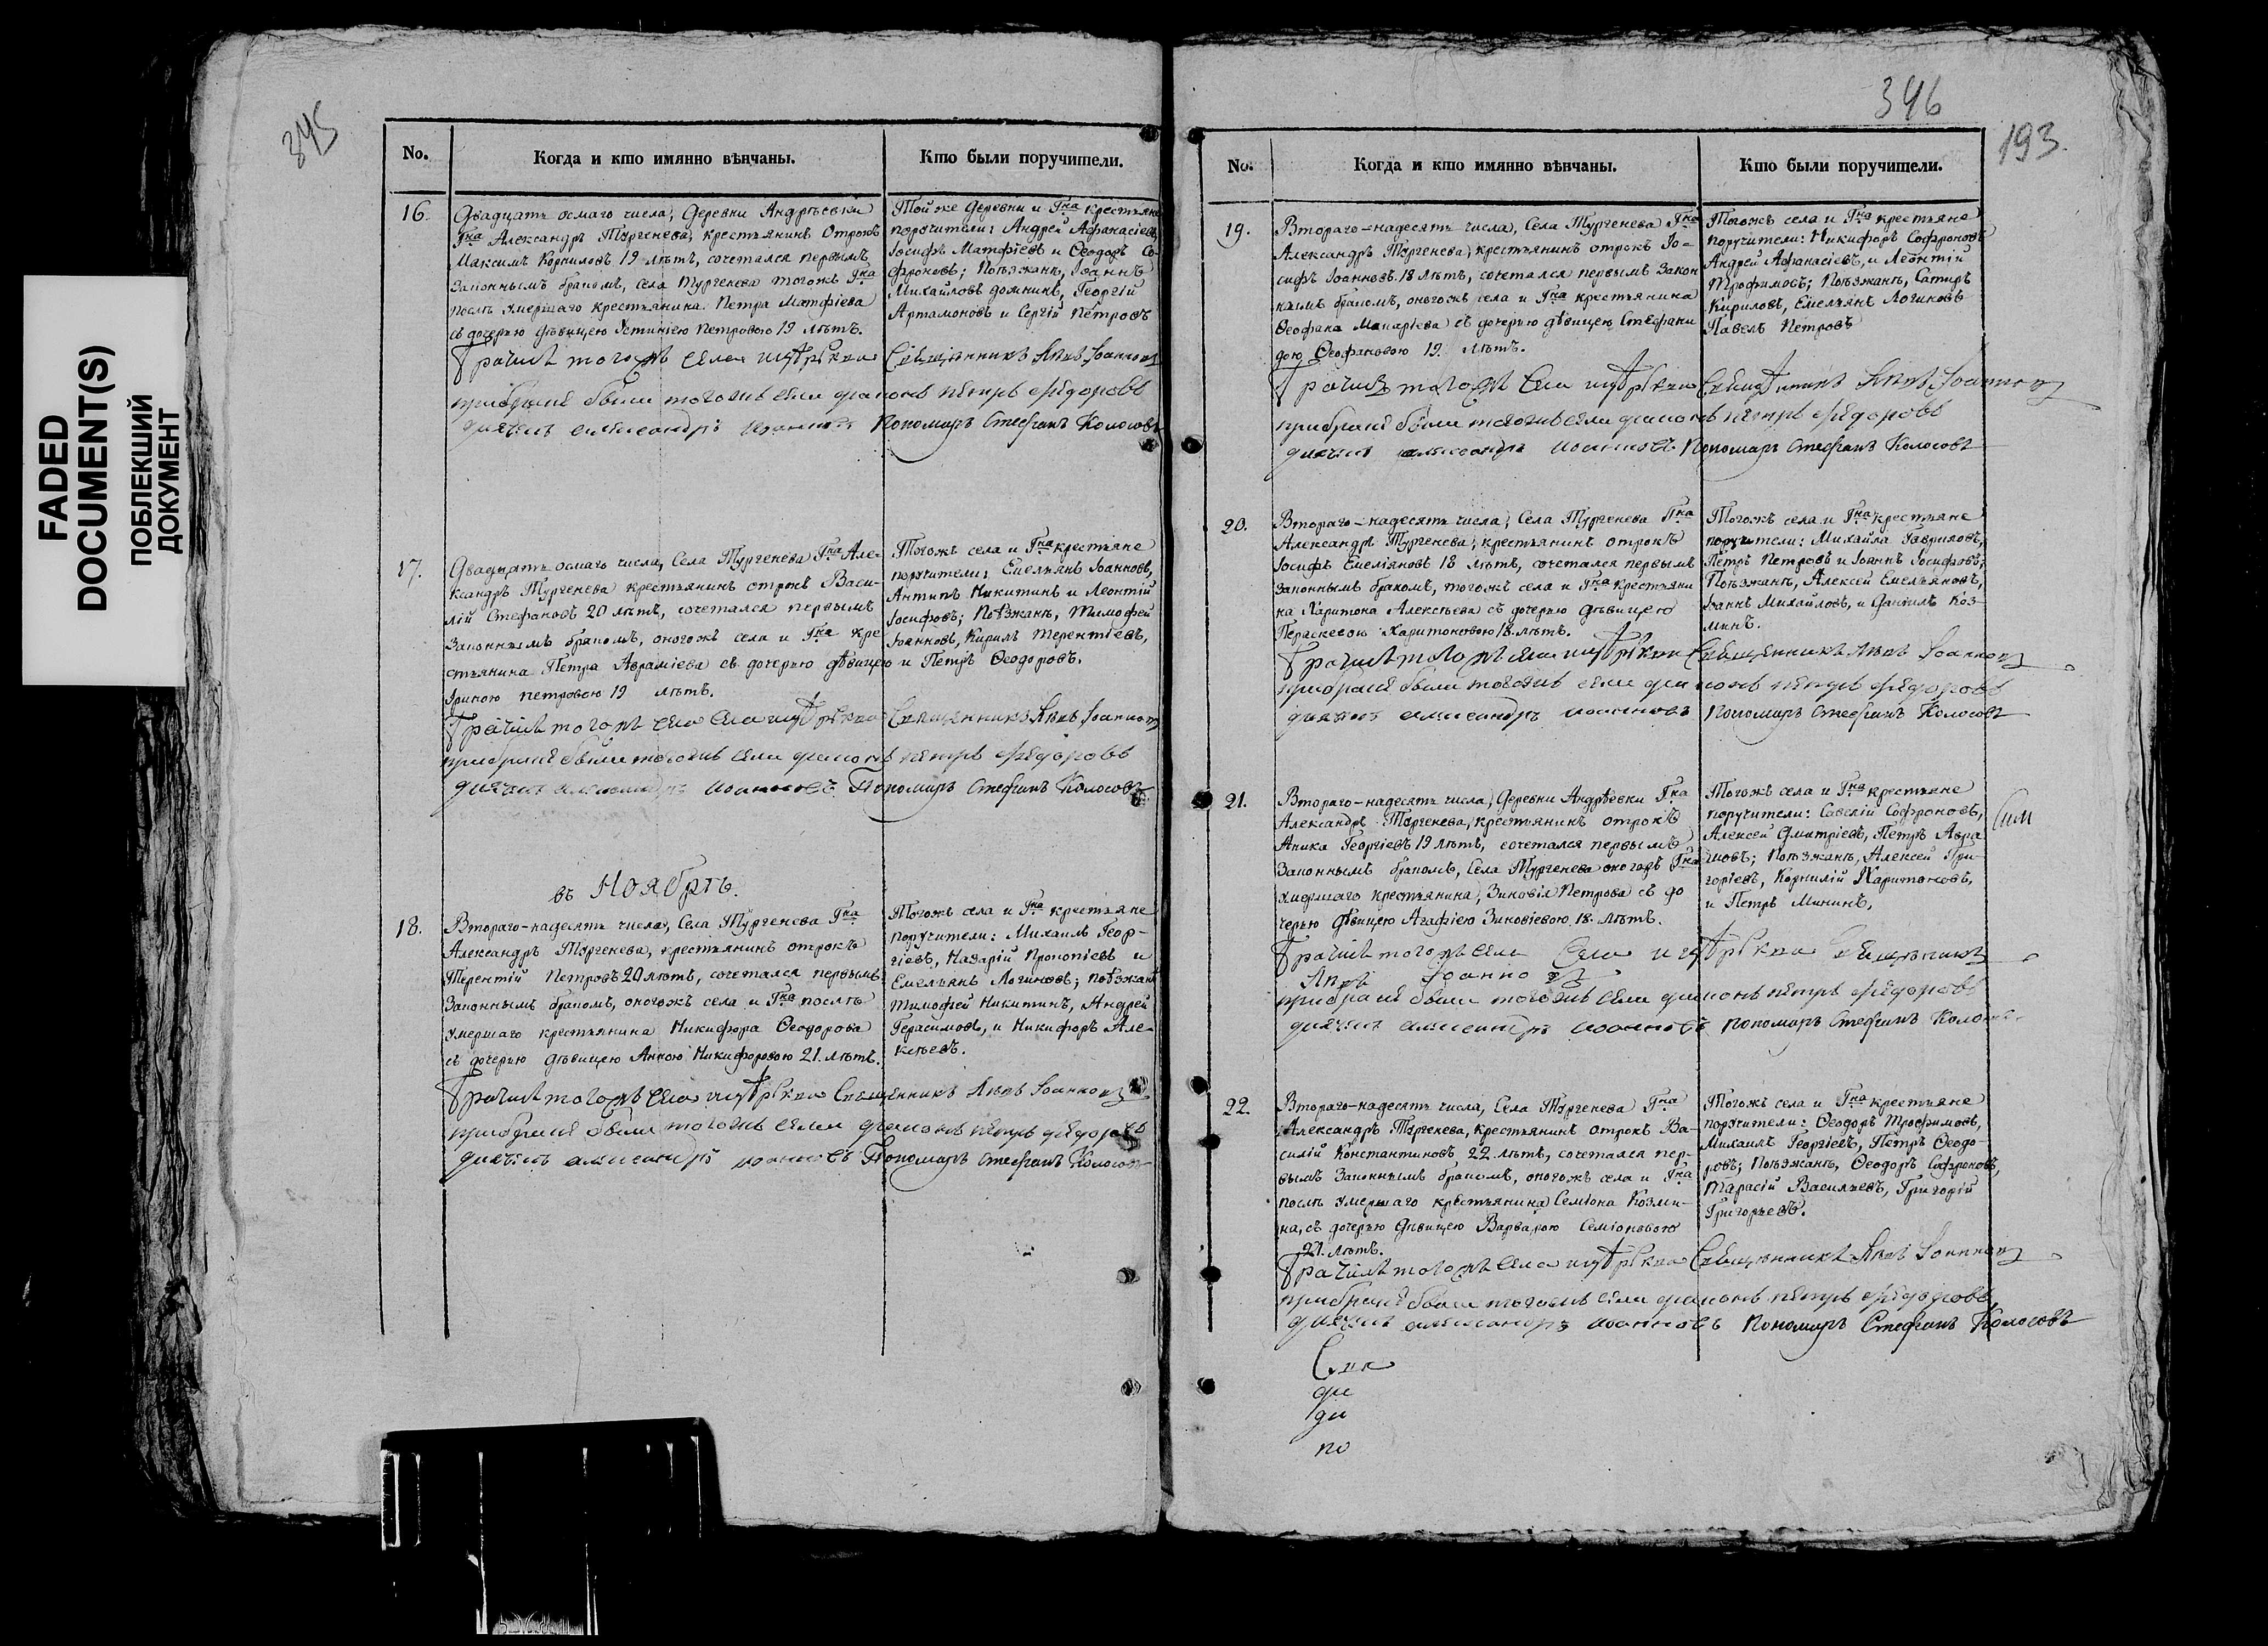 FADED
DOCUMENT(S)
ПОБЛЕКШИЙ
ДОКУМЕНТ
345
No.
Когда и кто имянно вѣнчаны.
Кто были поручители.
16.
Двадцать осмаго числа, Деревни Андрѣевки
Гна Александръ Тургенева, крестьянинъ Отрокъ
Максимъ Корниловъ 19 лѣтъ, сочетался первымъ
Законнымъ бракомъ, села Тургенева тогожъ Гна
послѣ умершаго крестьянина Петра Матфіева
съ дочерью дѣвицею Устиніею Петровою 19 лѣтъ.
Той же деревни и Гна крестьяне
поручители: Андрей Афанасіевъ,
Іосифъ Матфіевъ и Ѳеодоръ Со-
фроновъ; Поѣзжанъ, Іоаннъ
Михайловъ домнинъ, Георгій
Артамоновъ и Сергій Петровъ
села Священникъ Іоаннов
были тогожъ села диаконъ петръ фѣдоровъ
александръ иоанновъ Пономарь Стефанъ Колосовъ
17.
Двадцать осмаго числа, Села Тургенева Гна Але-
ксандръ Тургенева крестьянинъ отрокъ Васи-
лій Стефановъ 20 лѣтъ, сочетался первымъ
Законнымъ бракомъ, оногожъ села и Гна кре
стьянина Петра Авраміева съ дочерью дѣвицею
Іриною петровою 19 лѣтъ.
Тогожъ села и Гна крестьяне
поручители: Емельянъ Іоанновъ,
Антипъ Никитинъ и Леонтій
Іосифовъ; Поѣзжанъ, Тимофей
Іоанновъ, Кирилъ Терентіевъ,
и Петръ Ѳеодоровъ.
села Священникъ Іоаннов
были тогожъ села диаконъ петръ фѣдоровъ
александръ иоанновъ Пономарь Стефанъ Колосовъ
въ Ноябрѣ.
18.
Втораго-надесять числа, Села Тургенева Гна
Александръ Тургенева, крестьянинъ отрокъ
Терентій Петровъ 20 лѣтъ, сочетался первымъ
Законнымъ бракомъ, оногожъ села и Гна послѣ
умершаго крестьянина Никифора Ѳеодорова
съ дочерью дѣвицею Анною Никифоровою 21. лѣтъ.
Тогожъ села и Гна крестьяне
поручители: Михаилъ Геор-
гіевъ, Назарій Прокопіевъ и
Емельянъ Логиновъ; поѣзжанъ
Тимофей Никитинъ, Андрей
Герасимовъ, и Никифоръ Але-
ксѣевъ.
села Священникъ Іоаннов
были тогожъ села диаконъ петръ фѣдоровъ
александръ иоанновъ Пономарь Стефанъ Колосовъ
346
193.
No.
Когда и кто имянно вѣнчаны.
Кто были поручители.
19.
Втораго-надесять числа, Села Тургенева Гна
Александръ Тургенева, крестьянинъ отрокъ Іо-
сифъ Іоанновъ 18 лѣтъ, сочетался первымъ Закон
нымъ бракомъ, оногожъ села и Гна крестьянина
Ѳеофана Макаріева съ дочерью дѣвицею Стефани
дою Ѳеофановою 19. лѣтъ.
Тогожъ села и Гна крестьяне
поручители: Никифоръ Софроновъ
Андрей Афанасіевъ, и Леонтій
Трофимовъ; Поѣзжанъ, Сатиръ
Кириловъ, Емельянъ Логиновъ
Павелъ Петровъ
села Іоаннов
были тогожъ села диаконъ петръ фѣдоровъ
александръ иоанновъ Пономарь Стефанъ Колосовъ
20.
Втораго-надесять числа, Села Тургенева Гна
Александръ Тургенева, крестьянинъ отрокъ
Іосифъ Емеліяновъ 18 лѣтъ, сочетался первымъ
законнымъ бракомъ, тогожъ села и Гна крестьяни
на Харитона Алексѣева съ дочерью дѣвицею
Параскевою Харитоновою 18. лѣтъ.
Тогожъ села и Гна крестьяне
поручители: Михайла Гавриловъ,
Петръ Петровъ и Іоаннъ Іосифовъ;
Поѣзжанъ, Алексей Емельяновъ,
Іоаннъ Михайловъ, и Даніилъ Коз-
минъ.
Священникъ Іоаннов
были тогожъ села диаконъ петръ фѣдоровъ
александръ иоанновъ Пономарь Стефанъ Колосовъ
21.
Втораго-надесять числа, Деревни Андрѣевки Гна
Александръ Тургенева, крестьянинъ отрокъ
Аника Георгіевъ 19 лѣтъ, сочетался первымъ
Законнымъ бракомъ, Села Тургенева оногожъ Гна
умершаго крестьянина, Зиновія Петрова съ до
черью дѣвицею Агафіею Зиновіевою 18. лѣтъ.
Тогожъ села и Гна крестьяне
поручители: Савелій Софроновъ,
Алексей Дмитріевъ, Петръ Авра
мовъ; Поѣзжанъ, Алексей Гри-
горіевъ, Корнилій Харитоновъ,
и Петръ Мининъ,
села
Іоаннов
были тогожъ села диаконъ петръ фѣдоровъ
александръ иоанновъ пономарь Стефанъ
22.
Втораго-надесять числа, Села Тургенева Гна
Александръ Тургенева, крестьянинъ отрокъ Ва-
силій Константиновъ 22 лѣтъ, сочетался пер-
вымъ Законнымъ бракомъ, оногожъ села и Гна
послѣ умершаго крестьянина Семіона Козми-
на, съ дочерью дѣвицею Варварою Семіоновою
21. лѣтъ.
Тогожъ села и Гна крестьяне
поручители: Ѳеодоръ Трофимовъ,
Михаилъ Георгіевъ, Петръ Ѳеодо-
ровъ; Поѣзжанъ, Ѳеодоръ Софроновъ,
Тарасій Васильевъ, Григорій
Григорьевъ.
села Священникъ Іоаннов
были тогожъ села диаконъ петръ фѣдоровъ
александръ иоанновъ Пономарь Стефанъ Колосовъ
ди
ди
по